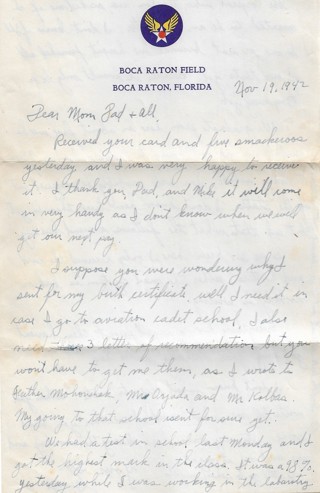 BOCA RATON FIELD
BOCA RATON, FLORIDA
Nov 19, 1942
Dear Mom, Dad & all,
Received your card and five smackeroos
yesterday and I was very happy to receive
it. I thank you, Dad, and Mike it will come
in very handy as I don't know when we will
get our next pay.
I suppose you were wondering why I
sent for my birth certificate, well I need it in
case I go to aviation cadet school, I also
need 3 letter of recommendation, but you
won't have to get me them, as I wrote to
Father Mr and Mr Kolbes.
My going to that school isn't for sure yet.
We had a test in school last Monday and I
got the highest mark in the class. It was a 93%.
yesterday while I was working in the